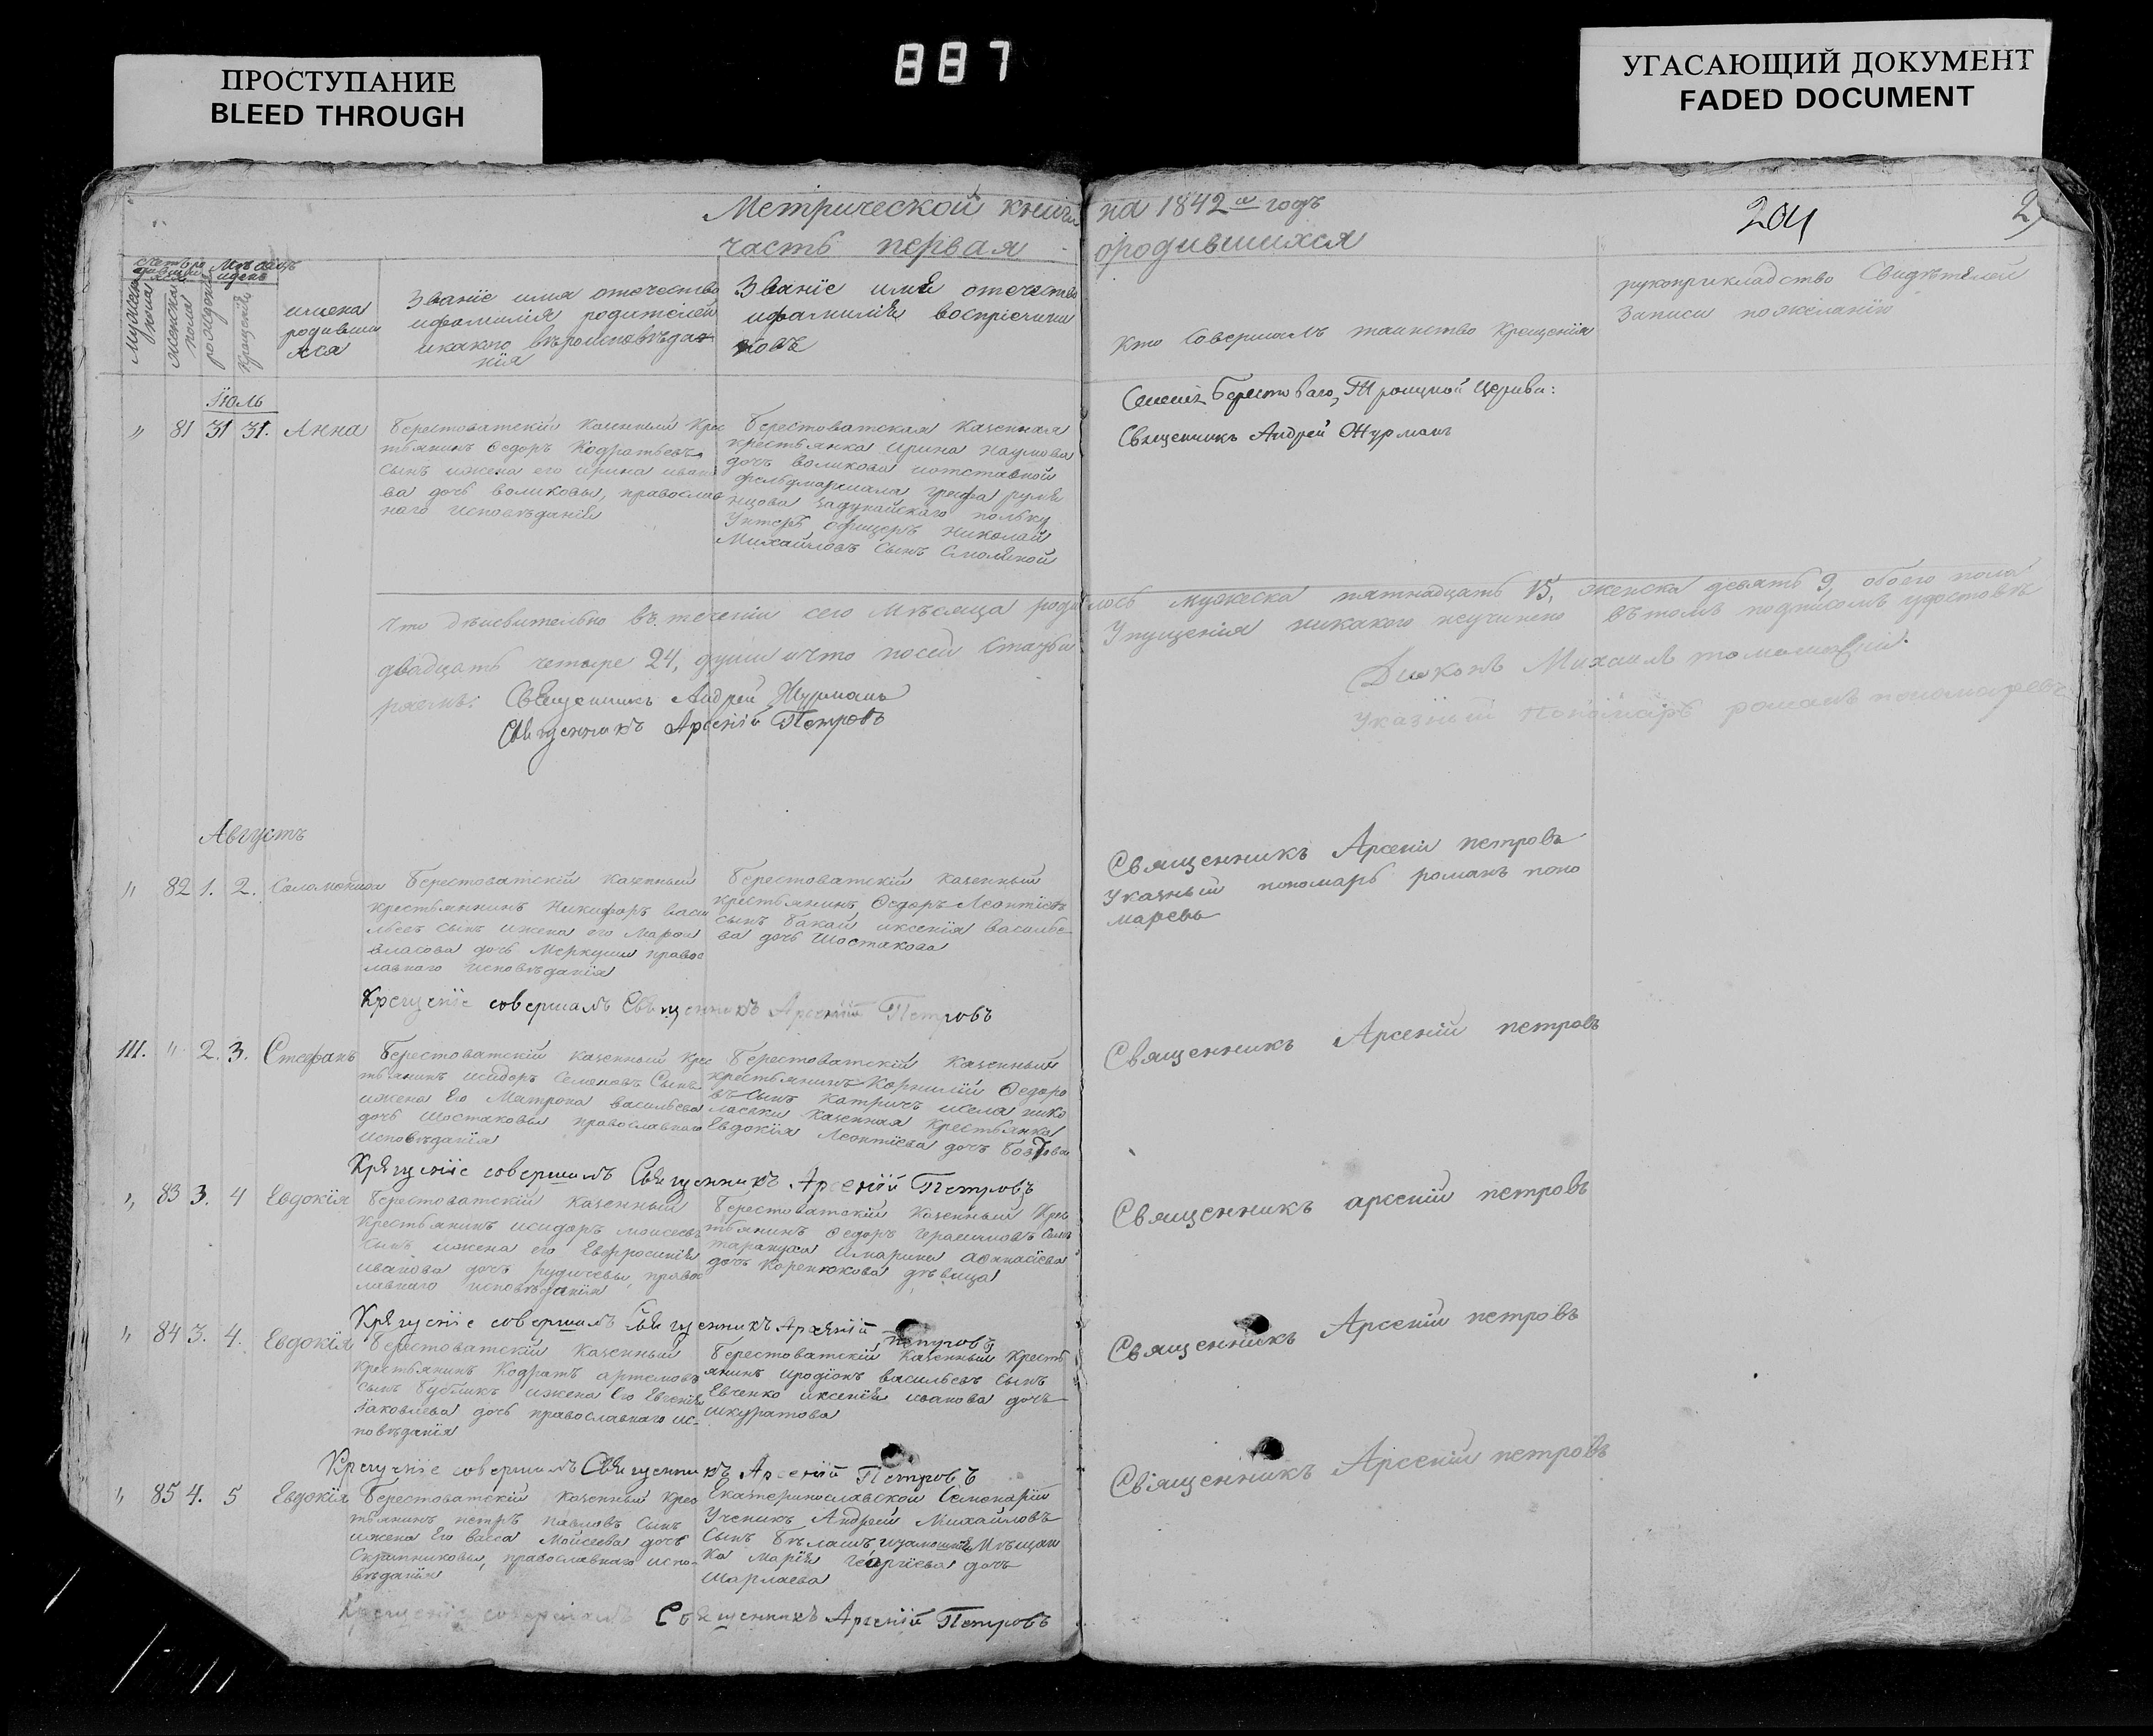 887
ПРОСТУПАНИЕ
BLEED THROUGH
УГАСАЮЩИЙ ДОКУМЕНТ
FADED DOCUMENT
Метрической книги на 1842 годъ
часть первая ородившихся
204
Мужеска пола
женска пола
рожденія
Крещенія
имена родивши хся
Званїе имя отечество
ифамилія родителей
икакого вѣроисповѣда
нія
Званїе имя отечество
ифамилія воспріемни
ковъ
Кто Совершалъ таинство Крещенія
рукоприкладство Свидѣтелей
Записи пожеланію
Іюль
" 81 31 31. Анна
Берестоватскій Казенный Крес
тьянинъ Ѳедоръ Кодратьевъ
Сынъ ижена его ирина ивано
ва дочь воликовы, православ
наго Исповѣданія
Берестоватская Казенная
крестьянка Ирина Наумова
дочь воликова иотставной
фельдмаршала графа румян
цова Задунайскаго полку
Унтеръ офицеръ Николай
Михайловъ Сынъ Смоляной
Троицкой Церкви:
Священникъ Андрей Журманъ
Что дѣйсвительно въ теченіи сего Мѣсяца родилось мужеска пятнадцать 15, женска девять 9, обоего пола
двадцать четыре 24, души ичто посей Стазьи Упущенія никакого неучинено вътомъ подписомъ удостовѣ
ряемъ: Священникъ Андрей Журманъ
Священникъ Арсеній Петровъ
Дияконъ Михаилъ
Указный Пономаръ романъ пономаревъ
Августъ
" 82 1. 2. Соломонида
Берестоватскій Казенный
крестьянинъ Никифоръ васи
льевъ сынъ ижена его Марфа
власова дочь Меркуши правос
лавного исповѣданія
Берестоватскій Казенный
крестьянинъ Ѳедоръ Леонтіевъ
сынъ Бакай иксенія василье
ва дочь Шостакова
Священникъ Арсеній петровъ
Указный пономаръ романъ поно
маревъ
Крещенїе совершалъ Священникъ Арсеній Петровъ
111. " 2. 3. Стефанъ
Берестоватскій казенный Крес
тьянинъ исидоръ Семеновъ Сынъ
ижена Его Матрона васильева
дочь Шостаковы православнаго
Исповѣданія
Берестоватскій Казенный
крестьянинъ Корнилій Ѳедоро
въ Сынъ Катричъ исела нико
лаевки Казенная Крестьянка
Евдокія Леонтіева дочь
Священникъ Арсеній петровъ
Крещенїе совершалъ Священникъ Арсеній Петровъ
" 83 3. 4 Евдокія
Берестоватскій Казенный
Крестьянинъ исидоръ моисеевъ
Сынъ ижена его Евфросинія
иванова дочь рудичевы, правос
лавнаго исповѣданія
Берестоватскій Казенный Крес
тьянинъ Ѳедоръ Герасимовъ Сынъ
тарануха имарина аѳанасіева
дочь Коренюкова дѣвица
Священникъ арсеній петровъ
Крещенїе совершалъ Священникъ Арсеній Петровъ
" 84 3. 4. Евдокія
Берестоватскій Казенный
Крестьянинъ Кодратъ артемовъ
Сынъ Бубликъ ижена Его Евгенія
Іаковлева дочь православнаго ис-
повѣданія
Берестоватскій Казенный Кресть
янинъ иродіонъ васильевъ Сынъ
Евченко иксенія иванова дочь
шкуратова
Священникъ Арсеній петровъ
Крещенїе совершалъ Священникъ Арсеній Петровъ
" 85 4. 5 Евдокія
Берестоватскій Казенный Крес
тьянинъ петръ павловъ Сынъ
ижена Его васса Мойсеева дочь
Скрыпниковы, православнаго испо-
вѣданія
Екатеринославской Семенаріи
Ученикъ Андрей Михайловъ
Сынъ Мѣщан
ка Марія Геѡргіева дочь
Шарлаева
Священникъ Арсеній петровъ
Крещенїе совершалъ Священникъ Арсеній Петровъ